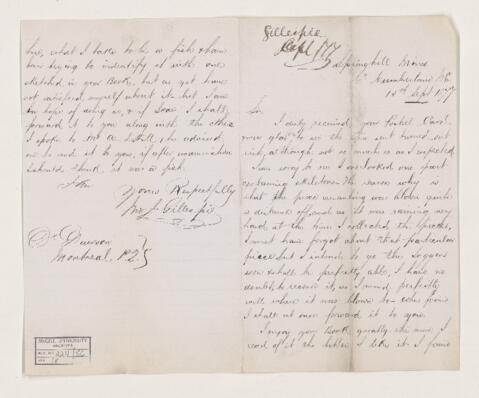 Gillespie
Sept 1877
Springhill Mines
Co Cumberland N.S.
15th Sept 1877
Sir
I duly received your Postal Card,
was glad to see the
rich, although not so much as I expected
I am sorry to see I overlooked one part
containing skeleton. The reason why is
that the piece remaining was blown quite
a distance off, and as it was raining very
hard at the time I collected the pieces,
I must have forgot about that particular
piece but I intend to go the Joggins
soon & shall be perfectly able, I have no
doubt, to recover it, as I mind perfectly
well where it was blown to - when found
I shall at once forward it to you.
I enjoy your Book greatly, the more I
read of it the better I like it. I found
here, what I take to be a fish & have
been trying to indentify it with one
sketched in your Book, but as yet have
not satisfied myself about it, but I am
in hopes of doing so, & if soon I shall
forward it to you along with the other
I spoke to Mr A. Hill, he advised
me to send it to you, if after examination
I should think it was a fish.
I am
Yours Respectfully
Gillespie
Dr Dawson
Montreal, P.Q.
McGILL UNIVERSITY
ARCHIVES
ACC. NO.
REF.